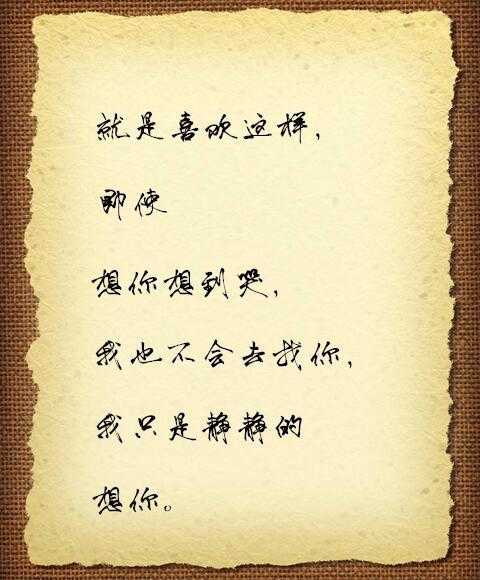 就是喜欢这样，
即使
想你想到哭，
我也不会去找你，
我只是静静的
想你。